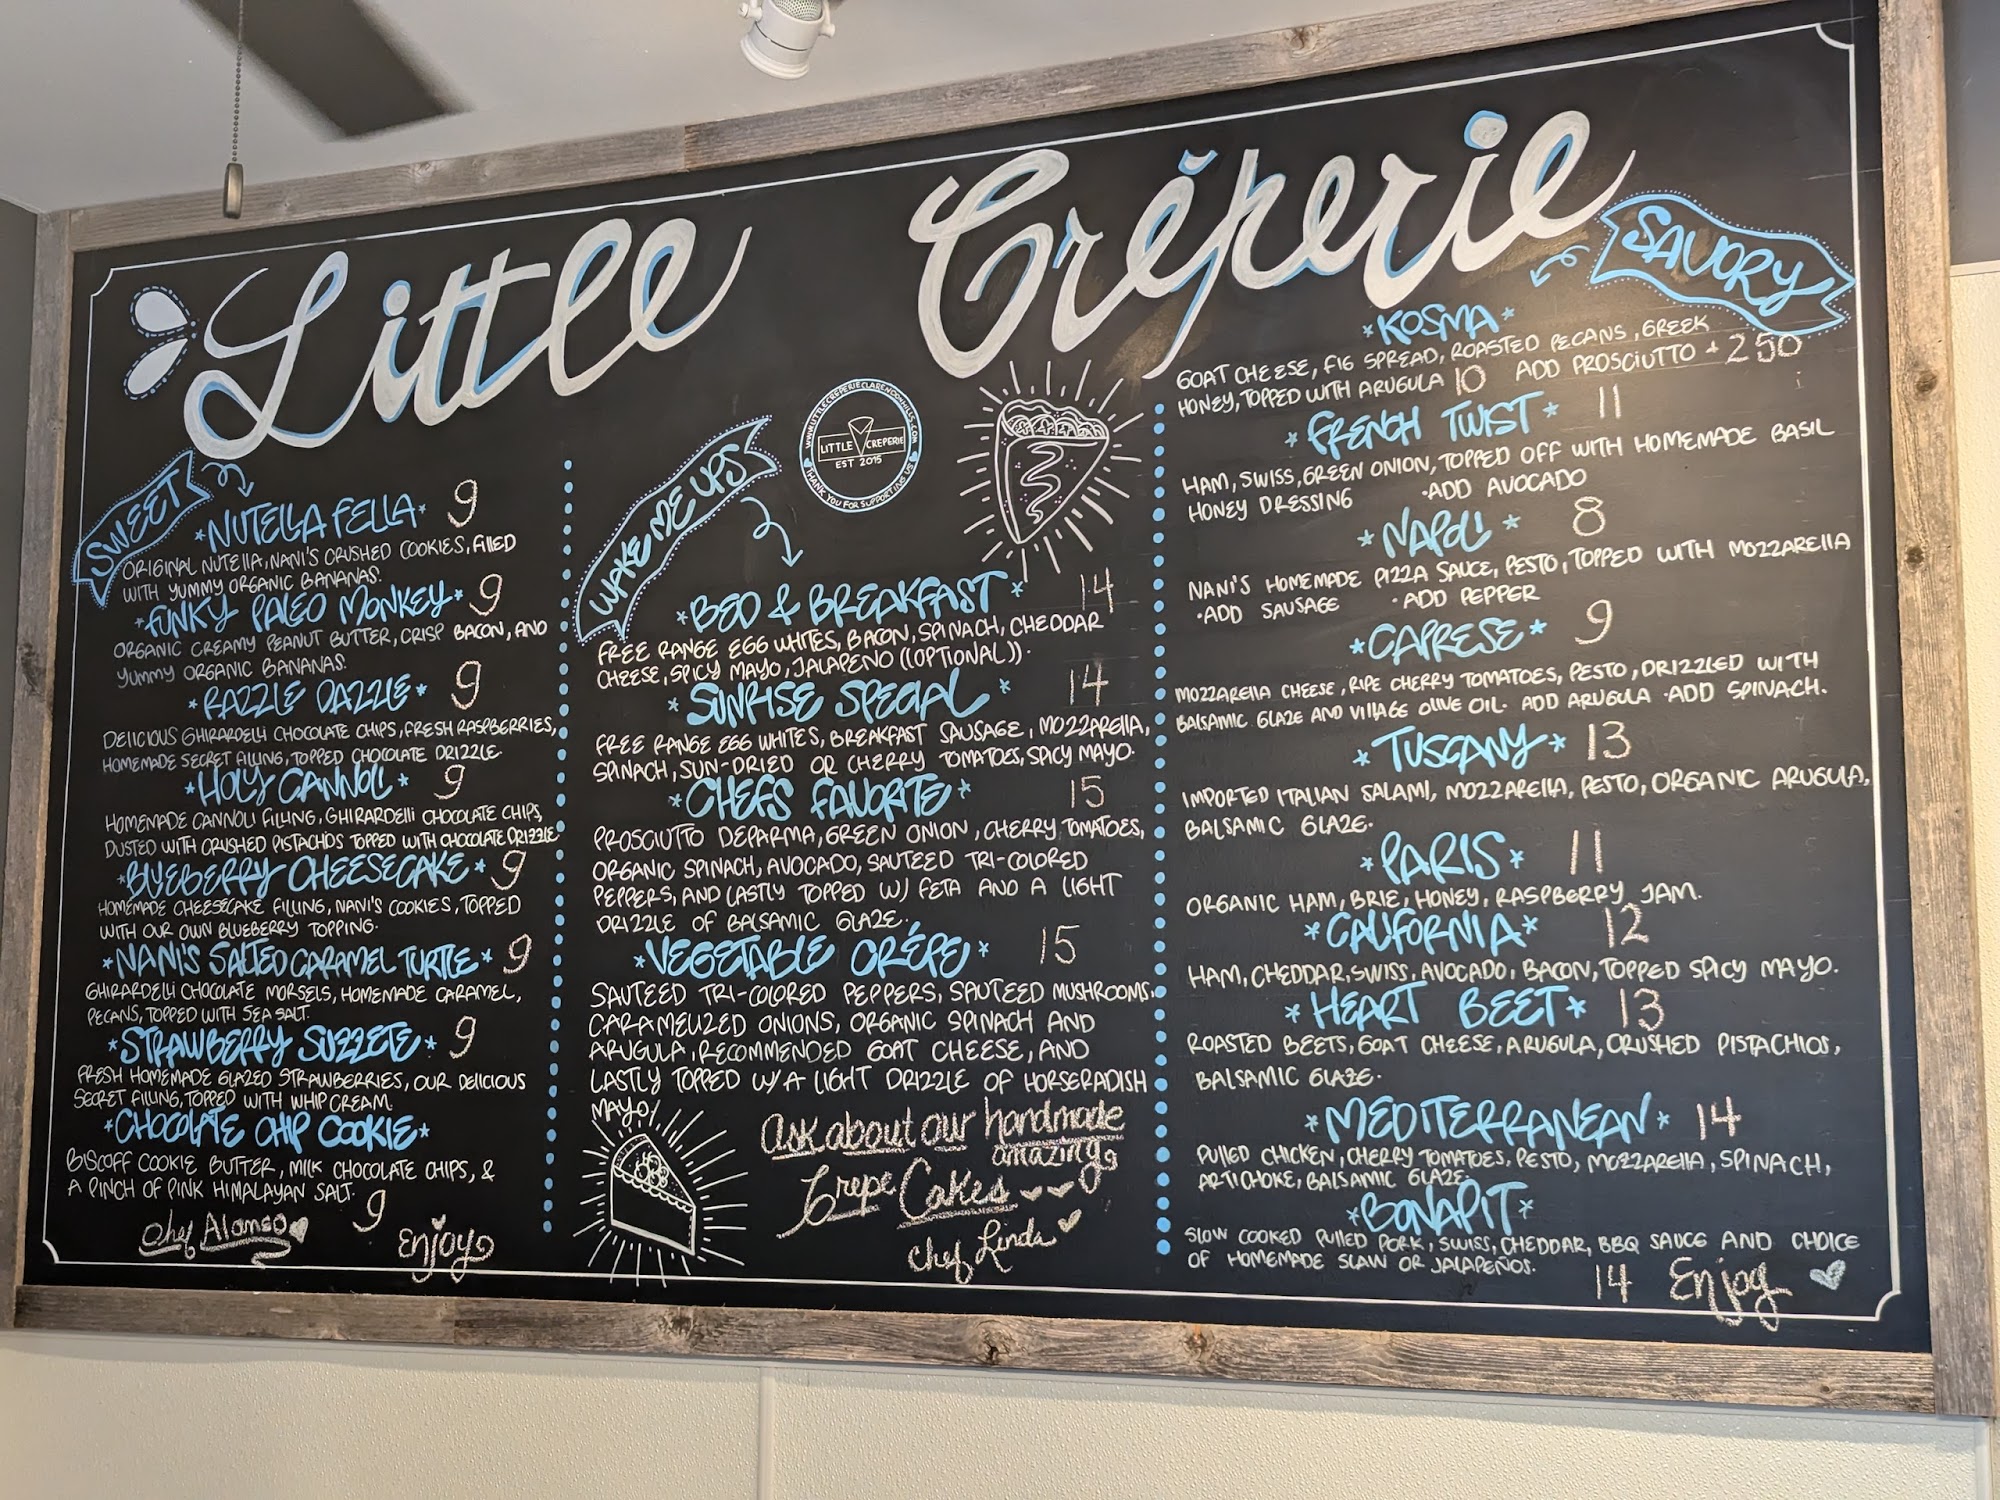 Little Crêperie
SWEET
*NUTELLA FELLA* 9
ORIGINAL NUTELLA, NANI'S CRUSHED COOKIES, FILLED
WITH YUMMY ORGANIC BANANAS.
*FUNKY PALEO MONKEY* 9
ORGANIC CREAMY PEANUT BUTTER, CRISP BACON, AND
YUMMY ORGANIC BANANAS.
*RAZZLE DAZZLE* 9
DELICIOUS GHIRARDELLI CHOCOLATE CHIPS, FRESH RASPBERRIES,
HOMEMADE SECRET FILLING, TOPPED CHOCOLATE DRIZZLE.
*HOLY CANNOLI* 9
HOMEMADE CANNOLI FILLING, GHIRARDELLI CHOCOLATE CHIPS,
DUSTED WITH CRUSHED PISTACHOS TOPPED WITH CHOCOLATE DRIZZLE
*BLUEBERRY CHEESECAKE* 9
HOMEMADE CHEESECAKE FILLING, NANI'S COOKIES, TOPPED
WITH OUR OWN BLUEBERRY TOPPING.
*NANI'S SALTED CARAMEL TURTLE* 9
GHIRARDELLI CHOCOLATE MORSELS, HOMEMADE CARAMEL,
PECANS, TOPPED WITH SEA SALT.
*STRAWBERRY SUZZETE* 9
FRESH HOMEMADE GLAZED STRAWBERRIES, OUR DELICIOUS
SECRET FILLING, TOPPED WITH WHIP CREAM.
*CHOCOLATE CHIP COOKIE*
BISCOFF COOKIE BUTTER, MILK CHOCOLATE CHIPS, &
A PINCH OF PINK HIMALAYAN SALT. 9
Chef Alonso Enjoy
WWW.LITTLECREPERIECLARENDONHILLS.COM
LITTLE CREPERIE
EST 2015
THANK YOU FOR SUPPORTING US
WAKE ME UPS
*BED & BREAKFAST* 14
FREE RANGE EGG WHITES, BACON, SPINACH, CHEDDAR
CHEESE, SPICY MAYO, JALAPENO ((OPTIONAL)).
*SUNRISE SPECIAL* 14
FREE RANGE EGG WHITES, BREAKFAST SAUSAGE, MOZZARELLA,
SPINACH, SUN-DRIED OR CHERRY TOMATOES, SPICY MAYO.
*CHEFS FAVORITE* 15
PROSCIUTTO DEPARMA, GREEN ONION, CHERRY TOMATOES,
ORGANIC SPINACH, AVOCADO, SAUTEED TRI-COLORED
PEPPERS, AND LASTLY TOPPED W/ FETA AND A LIGHT
DRIZZLE OF BALSAMIC GLAZE.
*VEGETABLE CRÉPE* 15
SAUTEED TRI-COLORED PEPPERS, SAUTEED MUSHROOMS,
CARAMELIZED ONIONS, ORGANIC SPINACH AND
ARUGULA, RECOMMENDED GOAT CHEESE, AND
LASTLY TOPPED W/ A LIGHT DRIZZLE OF HORSERADISH
MAYO/
Ask about our handmade
amazing
Crepe Cakes
Chef Linda
SAVORY
*KOSMA*
GOAT CHEESE, FIG SPREAD, ROASTED PECANS, GREEK
HONEY, TOPPED WITH ARUGULA 10 ADD PROSCIUTTO + 2 50
*FRENCH TWIST* 11
HAM, SWISS, GREEN ONION, TOPPED OFF WITH HOMEMADE BASIL
HONEY DRESSING ·ADD AVOCADO
*NAPOLI* 8
NANI'S HOMEMADE PIZZA SAUCE, PESTO, TOPPED WITH MOZZARELLA
·ADD SAUSAGE ·ADD PEPPER
*CAPRESE* 9
MOZZARELLA CHEESE, RIPE CHERRY TOMATOES, PESTO, DRIZZLED WITH
BALSAMIC GLAZE AND VILLAGE OLIVE OIL· ADD ARUGULA ·ADD SPINACH.
*TUSCANY* 13
IMPORTED ITALIAN SALAMI, MOZZARELLA, PESTO, ORGANIC ARUGULA,
BALSAMIC GLAZE.
*PARIS* 11
ORGANIC HAM, BRIE, HONEY, RASPBERRY JAM.
*CALIFORNIA* 12
HAM, CHEDDAR, SWISS, AVOCADO, BACON, TOPPED SPICY MAYO.
*HEART BEET* 13
ROASTED BEETS, GOAT CHEESE, ARUGULA, CRUSHED PISTACHIOS,
BALSAMIC GLAZE.
*MEDITERRANEAN* 14
PULLED CHICKEN, CHERRY TOMATOES, PESTO, MOZZARELLA, SPINACH,
ARTICHOKE, BALSAMIC GLAZE.
*BONAPIT*
SLOW COOKED PULLED PORK, SWISS, CHEDDAR, BBQ SAUCE AND CHOICE
OF HOMEMADE SLAW OR JALAPEÑOS.
14 Enjoy